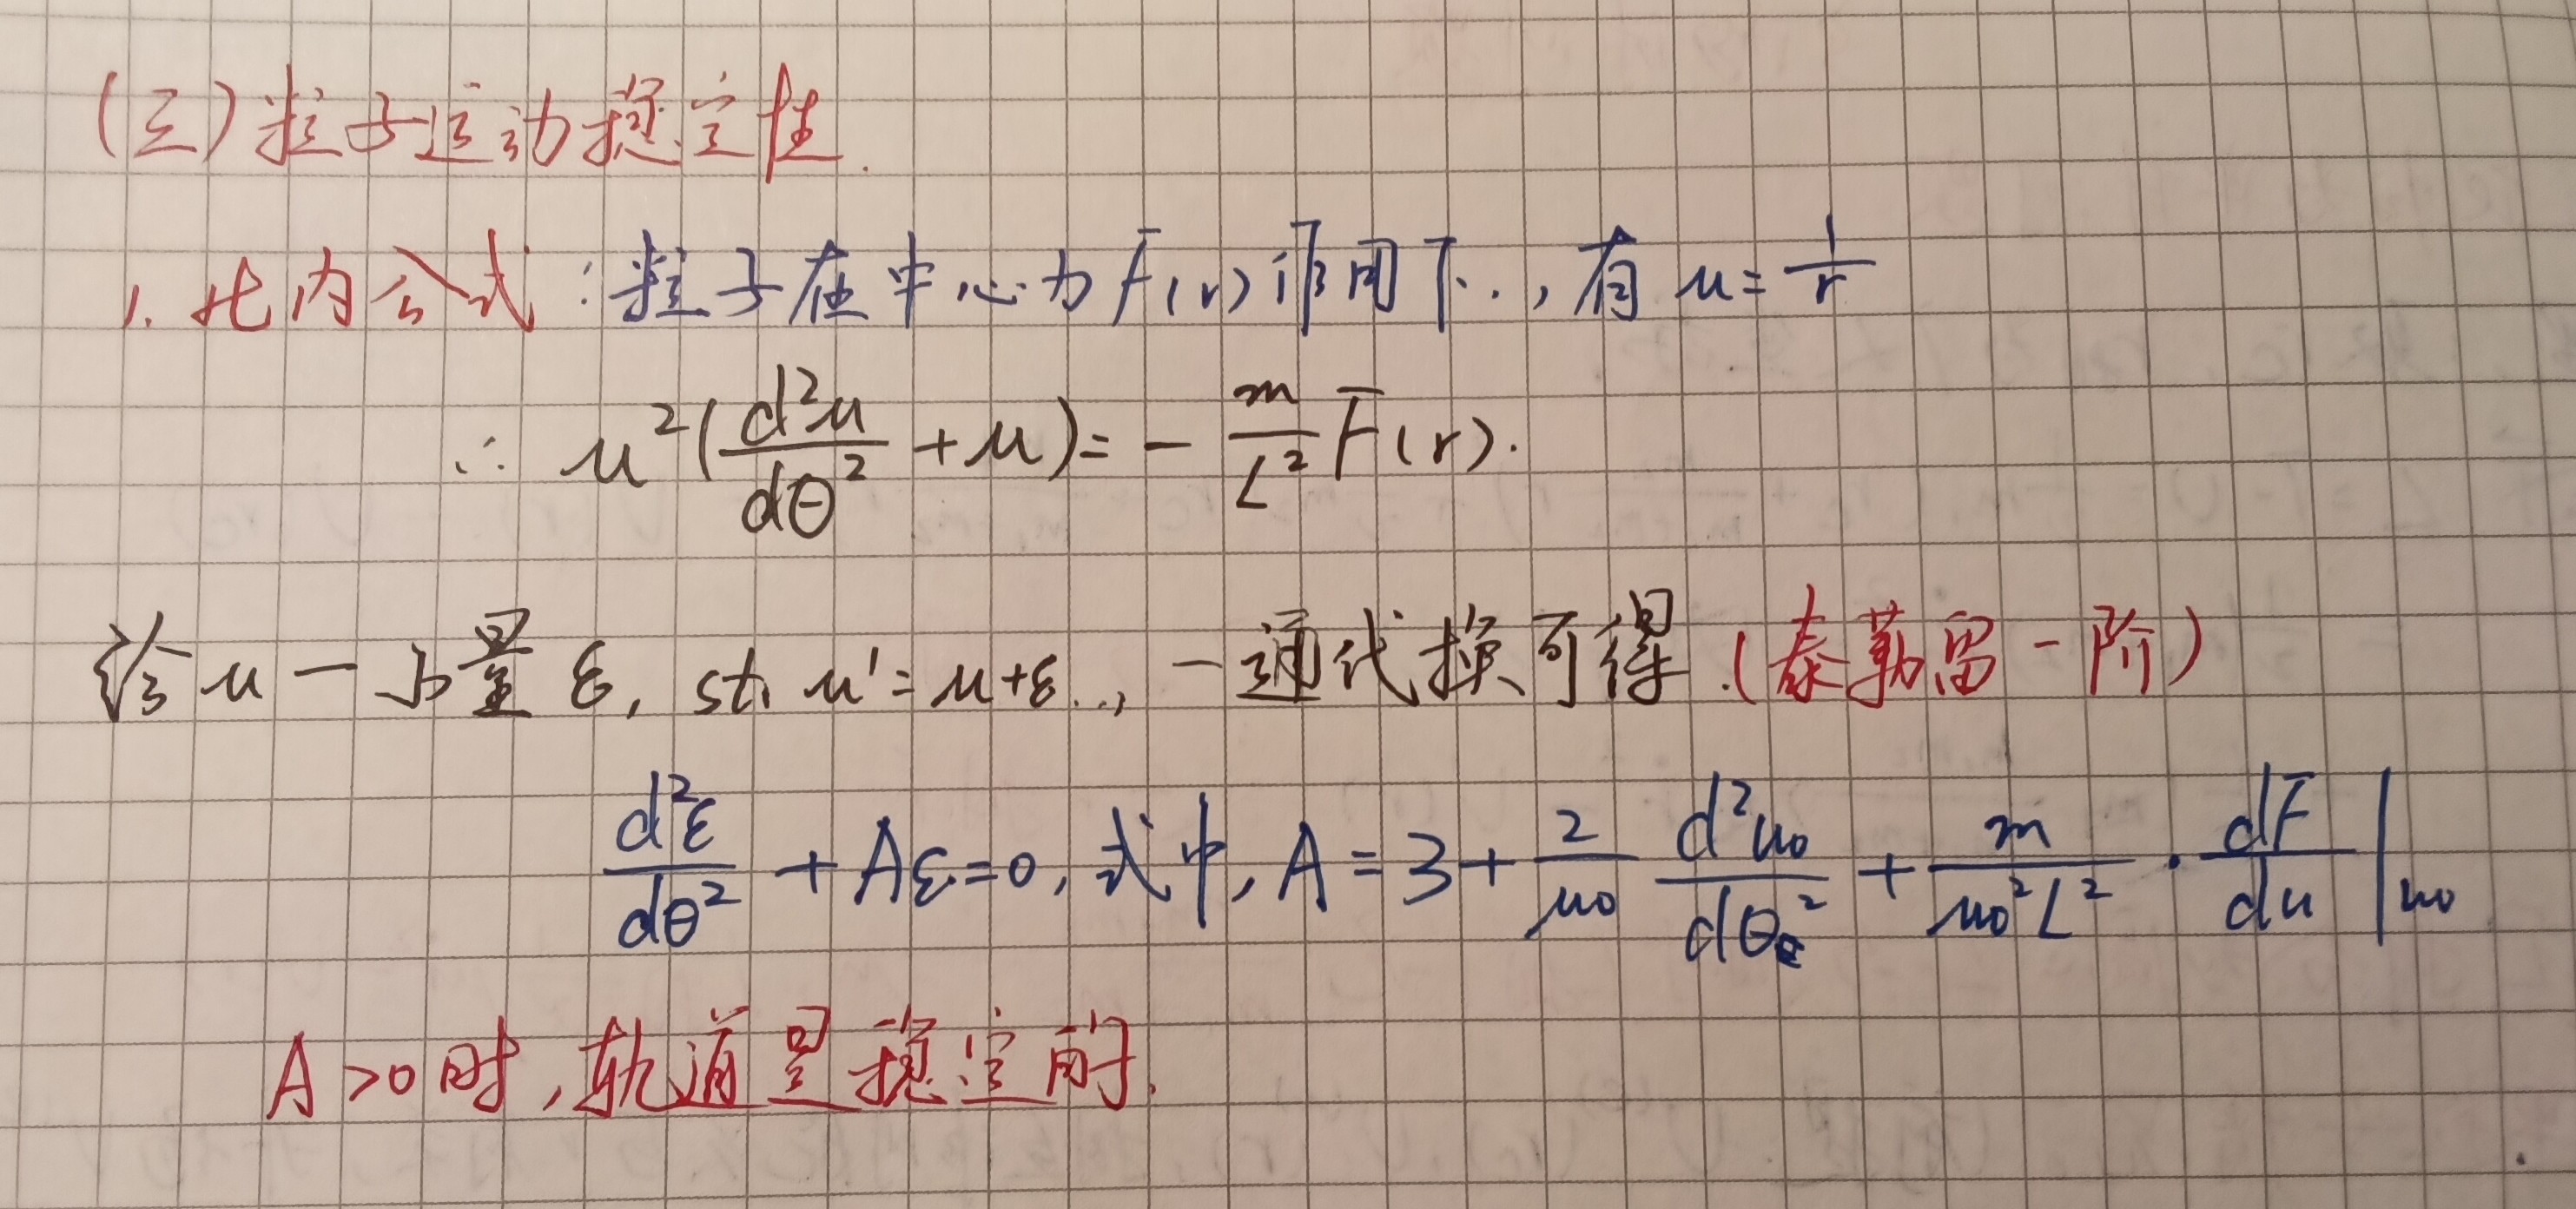 (三)粒子运动稳定性.
1. 比内公式:粒子在中心力F(r)作用下..,有 u=1/r
∴ u²(d²u/dθ²+u)=-m/L² F(r).
给u一小量ε, st. u'=u+ε..,一通代换可得.(泰勒留一阶)
d²ε/dθ²+Aε=0,式中,A=3+2/u₀ d²u₀/dθ²+m/u₀²L²·dF/du|u₀
A>0时,轨道是稳定的.